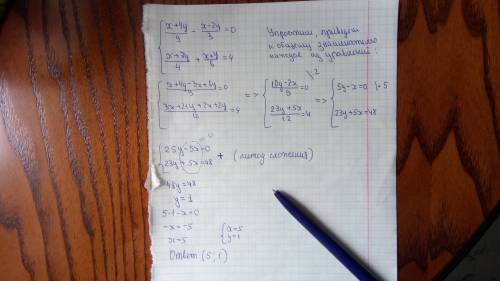 { (x+4y)/9 - (x-2y)/3 = 0
{ (x+7y)/4 + (x+y)/6 = 4
Упростим, приведя
к общему знаменателю
каждое из уравнений:
{ (x+4y-3x+6y)/9 = 0 => { (10y-2x)/9 = 0 |:2 => { 5y-x=0 |·5
{ (3x+21y+2x+2y)/12 = 4 { (23y+5x)/12 = 4 { 23y+5x=48
{ 25y-5x=0
{ 23y+5x=48 + (метод сложения)
48y=48
y=1
5·1-x=0
-x=-5
x=5 { x=5
{ y=1
Ответ (5; 1)